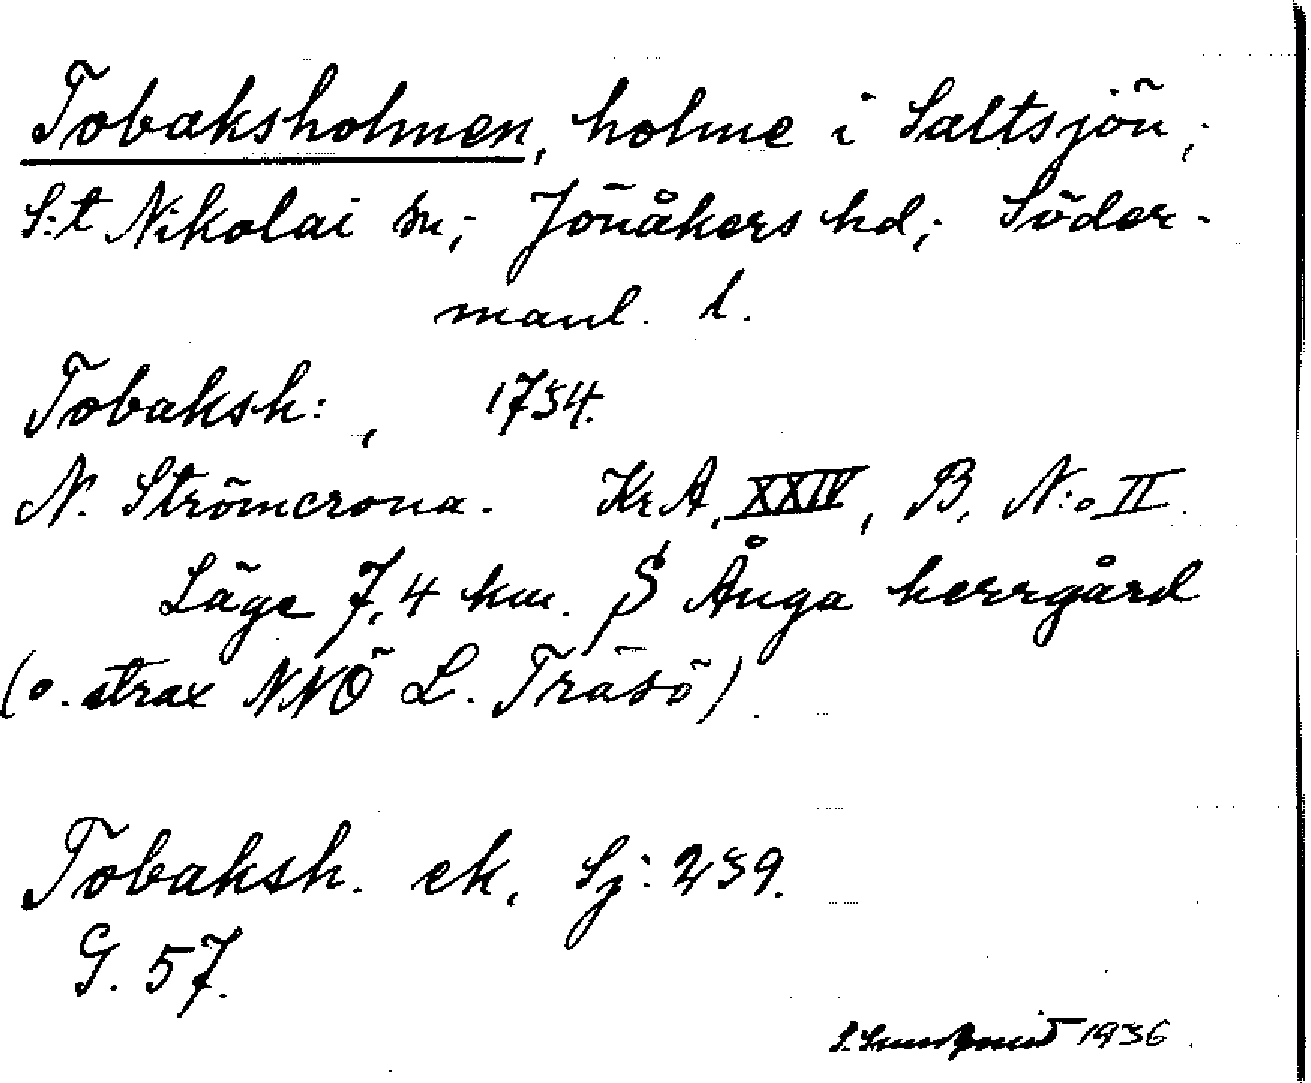 Tobaksholmen, holme i Saltsjön,
S:t Nikolai sn; Jönåkers hd; Söder-
manl. l.
Tobaksh:, 1734.
N. Strömcrona. KrA, XXIV, B, N:o II.
Läge 7,4 km. S Ånga herrgård
(o. strax NNÖ L. Träsö).
Tobaksh. ek. Sj: 239.
G. 57.
1936.